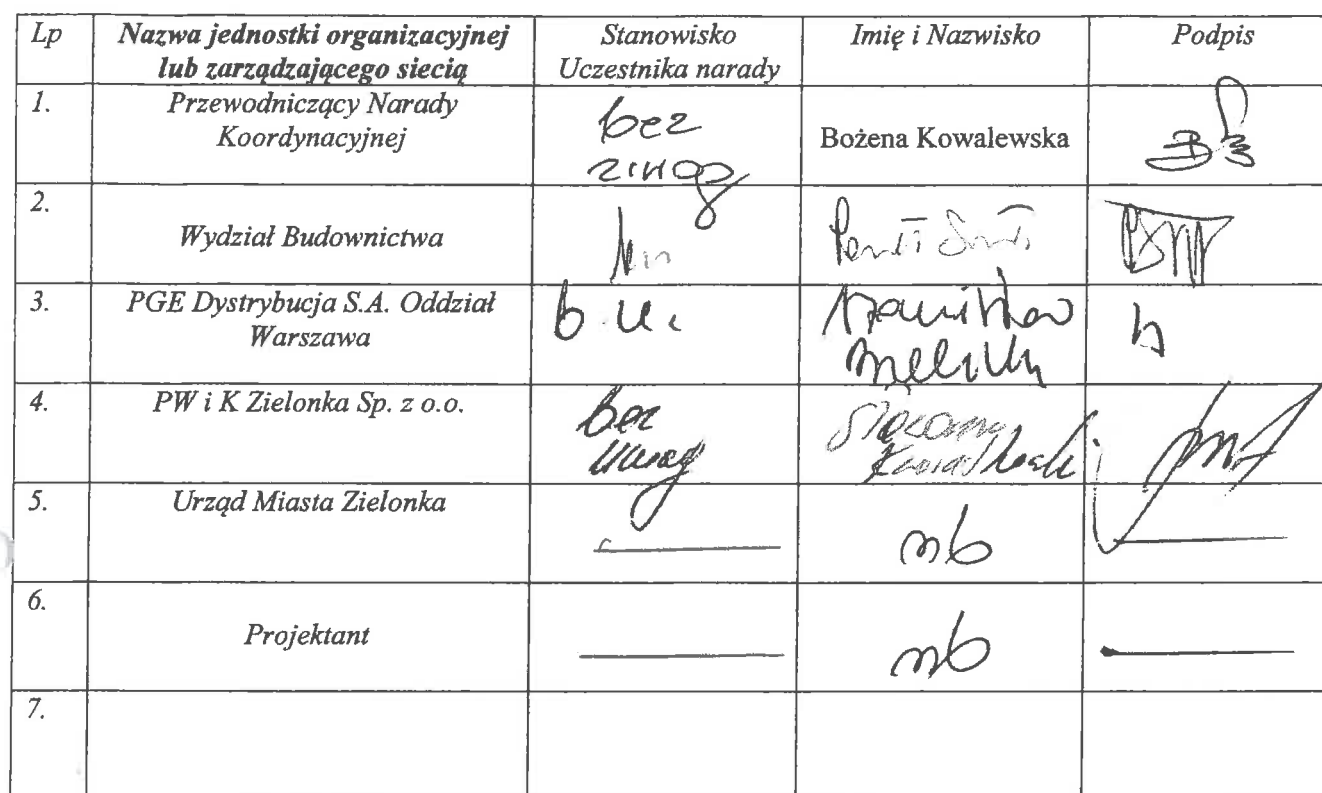 Lp Nazwa jednostki organizacyjnej lub zarządzającego siecią Stanowisko Uczestnika narady Imię i Nazwisko Podpis
1. Przewodniczący Narady Koordynacyjnej bez uwag Bożena Kowalewska
2. Wydział Budownictwa
3. PGE Dystrybucja S.A. Oddział Warszawa b.u. Stanisław
4. PW i K Zielonka Sp. z o.o. bez uwag
5. Urząd Miasta Zielonka nb
6. Projektant nb
7.